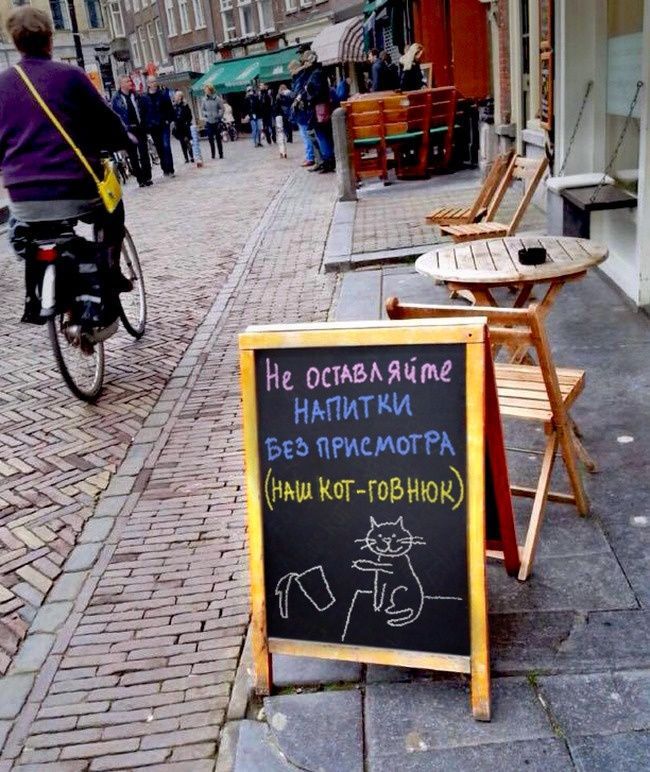 Не оставляйте
напитки
без присмотра
(наш кот-говнюк)